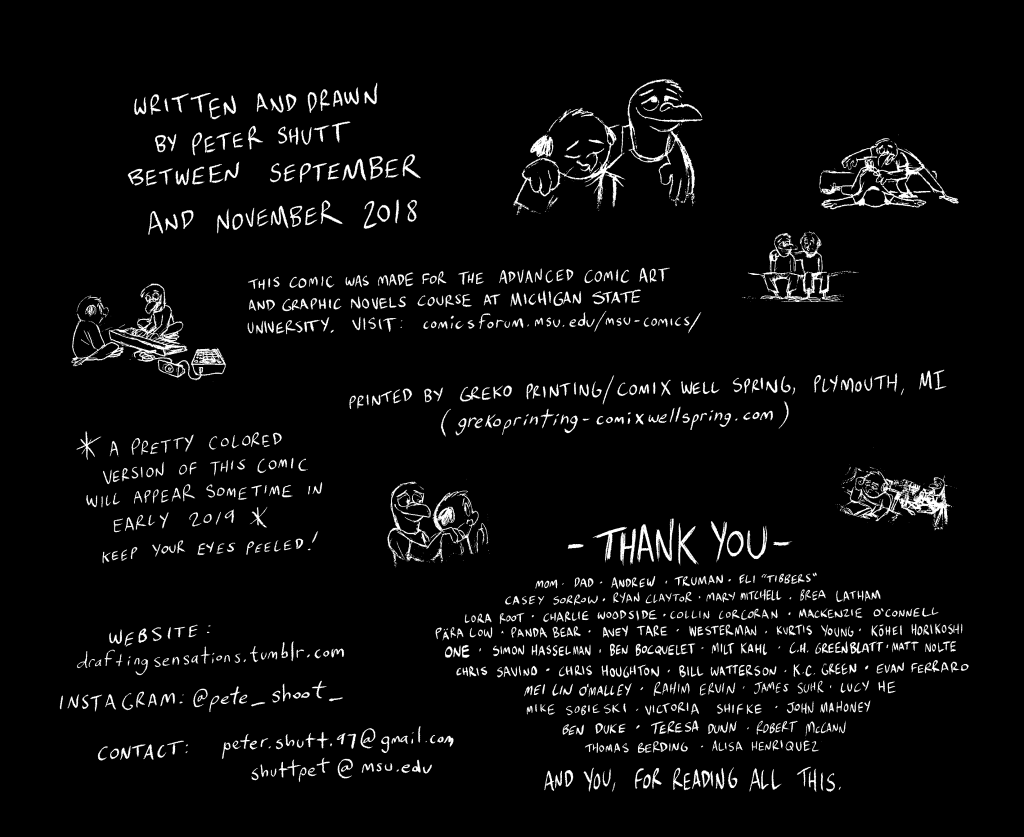 WRITTEN AND DRAWN
BY PETER SHUTT
BETWEEN SEPTEMBER
AND NOVEMBER 2018
THIS COMIC WAS MADE FOR THE ADVANCED COMIC ART
AND GRAPHIC NOVELS COURSE AT MICHIGAN STATE
UNIVERSITY. VISIT: comicsforum.msu.edu/msu-comics/
PRINTED BY GREKO PRINTING/COMIX WELL SPRING, PLYMOUTH, MI
(grekoprinting-comixwellspring.com)
* A PRETTY COLORED
VERSION OF THIS COMIC
WILL APPEAR SOMETIME IN
EARLY 2019 *
KEEP YOUR EYES PEELED!
WEBSITE:
draftingsensations.tumblr.com
INSTAGRAM: @pete_shoot_
CONTACT: peter.shutt.97@gmail.com
shuttpet@msu.edu
- THANK YOU -
MOM · DAD · ANDREW · TRUMAN · ELI "TIBBERS"
CASEY SORROW · RYAN CLAYTOR · MARY MITCHELL · BREA LATHAM
LORA ROOT · CHARLIE WOODSIDE · COLLIN CORCORAN · MACKENZIE O'CONNELL
PÄRA LOW · PANDA BEAR · AVEY TARE · WESTERMAN · KURTIS YOUNG · KŌHEI HORIKOSHI
ONE · SIMON HASSELMAN · BEN BOCQUELET · MILT KAHL · C.H. GREENBLATT · MATT NOLTE
CHRIS SAVINO · CHRIS HOUGHTON · BILL WATTERSON · K.C. GREEN · EVAN FERRARO
MEI LIN O'MALLEY · RAHIM ERVIN · JAMES SUHR · LUCY HE
MIKE SOBIESKI · VICTORIA SHIFKE · JOHN MAHONEY
BEN DUKE · TERESA DUNN · ROBERT McCANN
THOMAS BERDING · ALISA HENRIQUEZ
AND YOU, FOR READING ALL THIS.